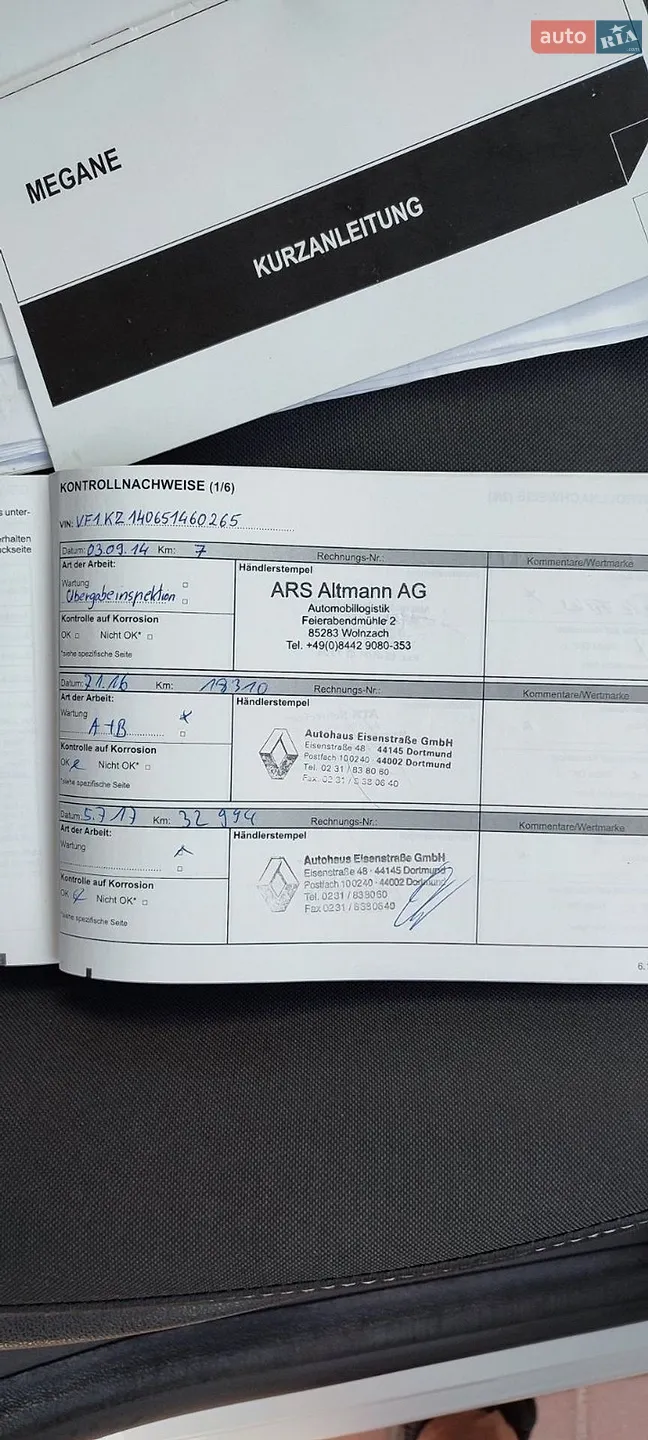 auto RIA.com
MEGANE
KURZANLEITUNG
s unter-
erhalten
ückseite
KONTROLLNACHWEISE (1/6)
VIN: VF1KZ140651460265
Datum: 03.09.14 Km: 7 Rechnungs-Nr.: Kommentare/Wertmarke
Art der Arbeit:
Wartung
Übergabeinspektion
Kontrolle auf Korrosion
OK Nicht OK*
*siehe spezifische Seite
Händlerstempel
ARS Altmann AG
Automobillogistik
Feierabendmühle 2
85283 Wolnzach
Tel. +49(0)8442 9080-353
Datum: 7.1.16 Km: 18310 Rechnungs-Nr.: Kommentare/Wertmarke
Art der Arbeit:
Wartung
A+B
Kontrolle auf Korrosion
OK Nicht OK*
*siehe spezifische Seite
Händlerstempel
Autohaus Eisenstraße GmbH
Eisenstraße 48 - 44145 Dortmund
Postfach 100240 - 44002 Dortmund
Tel. 02 31 / 83 80 60
Fax. 02 31 / 8 38 06 40
Datum: 5.7.17 Km: 32 994 Rechnungs-Nr.: Kommentare/Wertmarke
Art der Arbeit:
Wartung
Kontrolle auf Korrosion
OK Nicht OK*
*siehe spezifische Seite
Händlerstempel
Autohaus Eisenstraße GmbH
Eisenstraße 48 - 44145 Dortmund
Postfach 100240 - 44002 Dortmund
Tel. 0231 / 838060
Fax 0231 / 8380640